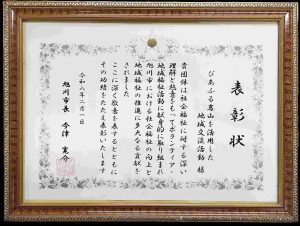 表彰状
ぴあふる嵐山を活用した
地域交流活動 様
貴団体は社会福祉に対する深い
理解と熱意をもってボランティア・
地域福祉活動に献身的に取り組まれ
旭川市における社会福祉の向上と
地域福祉の推進に多大なる貢献を
されました
ここに深く敬意を表するとともに
その功績をたたえ表彰いたします
令和八年二月一日
旭川市長 今津 寛介